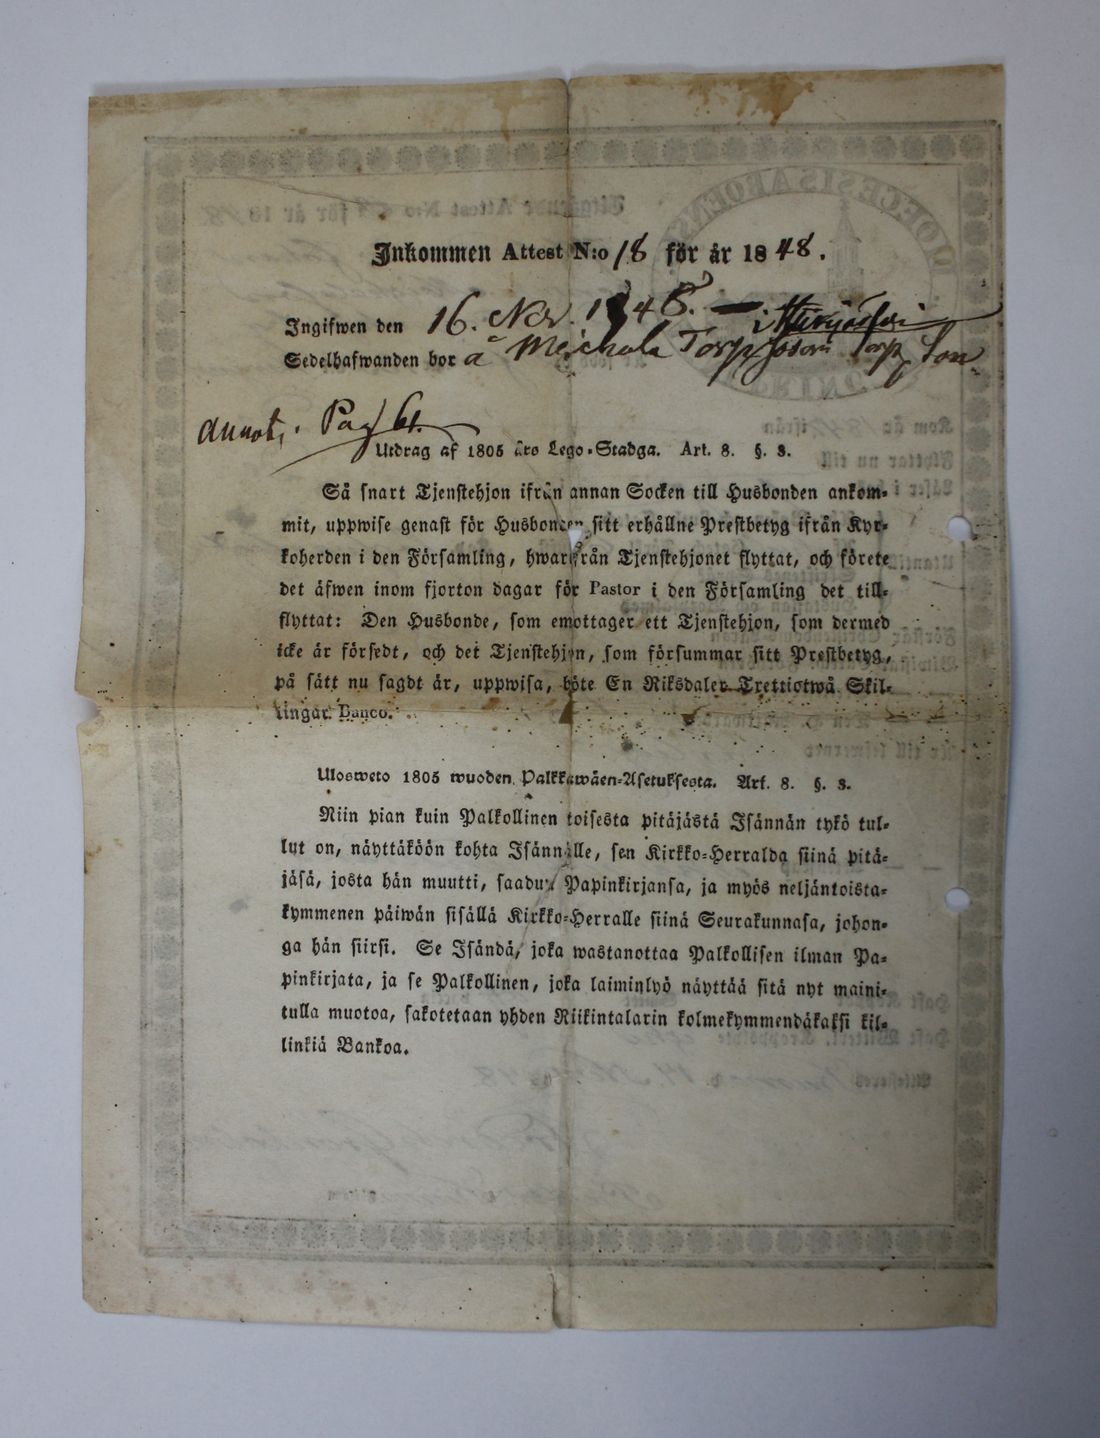 Inkommen Attest N:o 18 för år 1848.
Ingifwen den 16. Nov. 1848. —
Sedelhafwanden bor å Meickala Torp Torp Son
Annot. Pag 61.
Utdrag af 1805 års Lego-Stadga. Art. 8. §. 3.
Så snart Tjenstehjon ifrån annan Socken till Husbonden ankom-
mit, uppwise genast för Husbonden sitt erhållne Prestbetyg ifrån Kyr-
koherden i den Församling, hwarifrån Tjenstehjonet flyttat, och förete
det äfwen inom fjorton dagar för Pastor i den Församling det till-
flyttat: Den Husbonde, som emottager ett Tjenstehjon, som dermed
icke är försedt, och det Tjenstehjon, som försummar sitt Prestbetyg,
på sätt nu sagdt är, uppwisa, böte En Riksdaler Trettiotwå Skil-
lingar Banco.
Ulosweto 1805 wuoden Palkkawäen-Asetuksesta. Art. 8. §. 3.
Niin pian kuin Palkollinen toisesta pitäjästä Isännän tykö tul-
lut on, näyttäköön kohta Isännälle, sen Kirkko-Herralda siinä pitä-
jäsä, josta hän muutti, saadun Papinkirjansa, ja myös neljäntoista-
kymmenen päiwän sisällä Kirkko-Herralle siinä Seurakunnasa, johon-
ga hän siirsi. Se Isändä, joka wastanottaa Palkollisen ilman Pa-
pinkirjata, ja se Palkollinen, joka laiminlyö näyttää sitä nyt maini-
tulla muotoa, sakotetaan yhden Riikintalarin kolmekymmendäkaksi kil-
linkiä Bankoa.